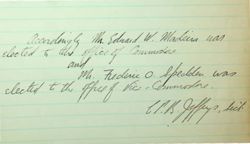 Accordingly Mr. Edward W. Madeira was
elected to the office of Commodore
and
Mr. Frederic O. Spedden was
elected to the office of Vice-Commodore.
C.P.B. Jefferys, Sec't